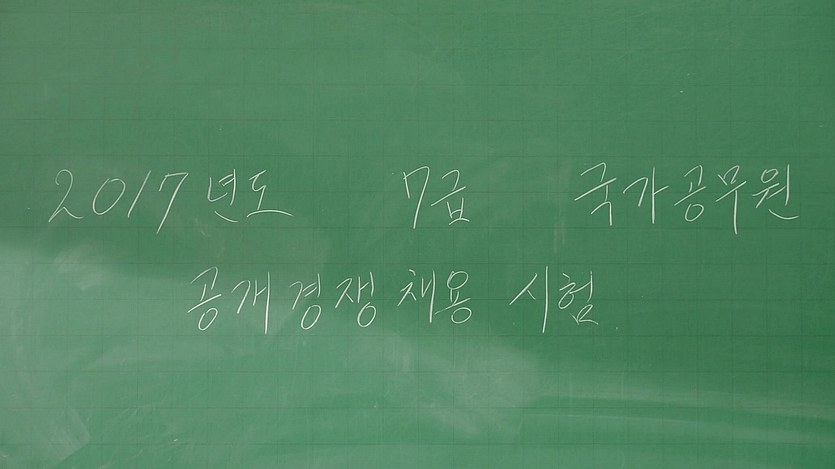 2017년도 7급 국가공무원
공개경쟁채용 시험.